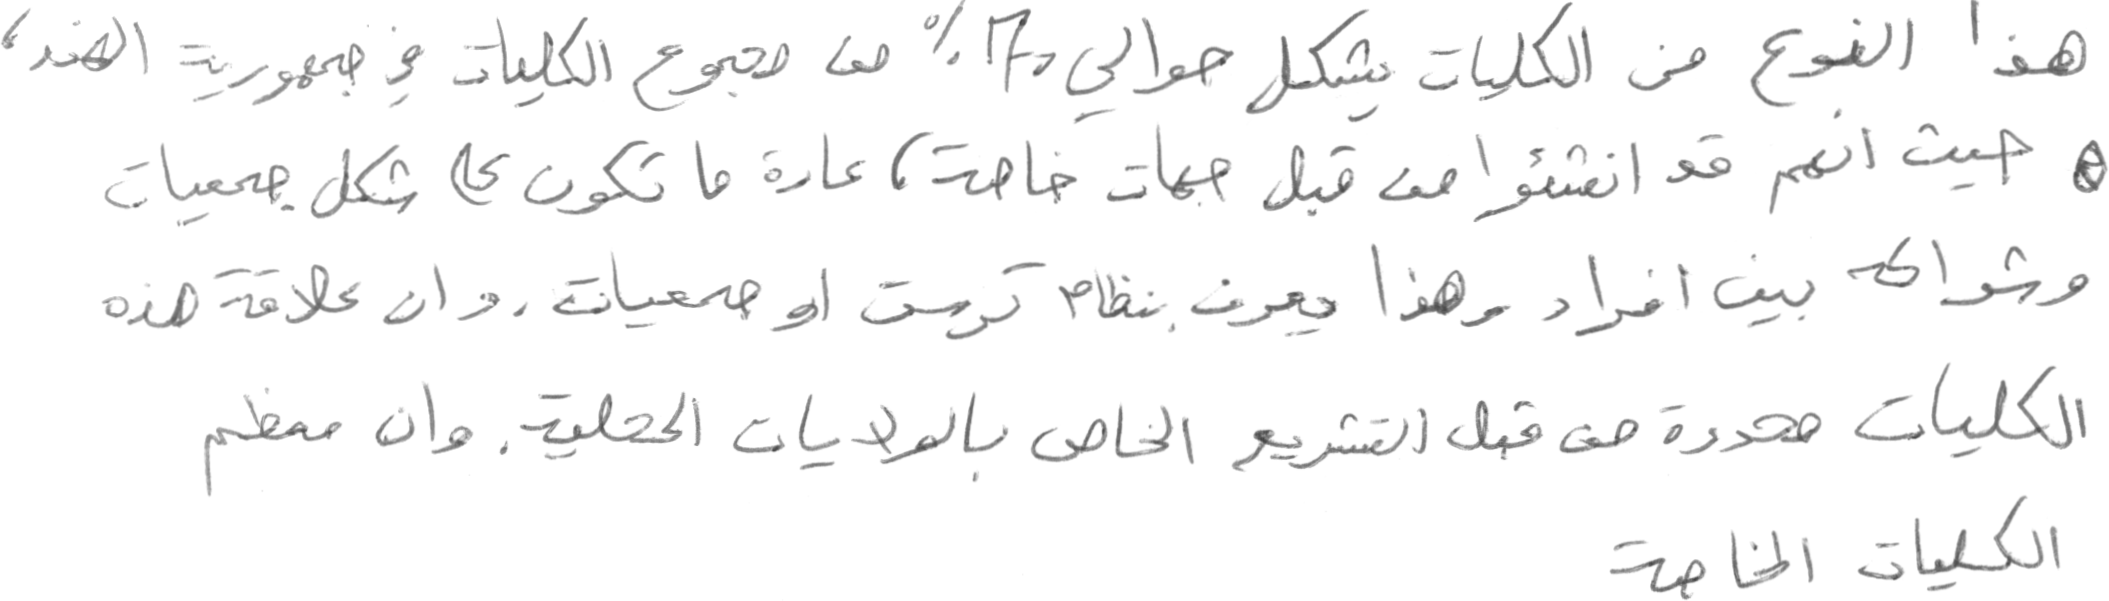 هذا النوع من الكليات يشكل حوالي ٪ من مجموع الكليات في جمهورية الهند،
حيث انهم قد انشئوا من قبل جهات خاصة، عادة ما تكون على شكل جمعيات
وشراكة بين افراد وهذا يعرف بنظام ترست او جمعيات. وان علاقة هذه
الكليات محددة من قبل التشريع الخاص بالولايات المحلية. وان معظم
الكليات الخاصة